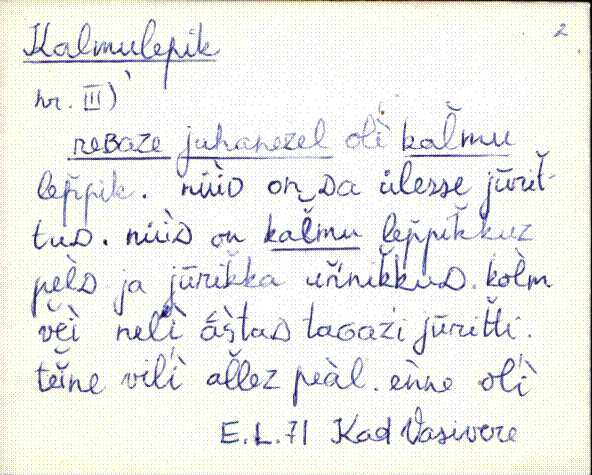 2
Kalmulepik
nr. III)
reBaze juhanezel oli kal̆mu
lep̆pik. nüüD on Da ülesse jūrit̆-
tuD. nüüD on kal̆mu lep̆pik̆kuz
pèlD ja jūrik̆ka un̆nik̆kuD. kolm
vĕi neli ásta D taGazi jūrit̆ti.
tĕine vili al̆lez peàl. enne oli
E.L.71 Kad Vasivere